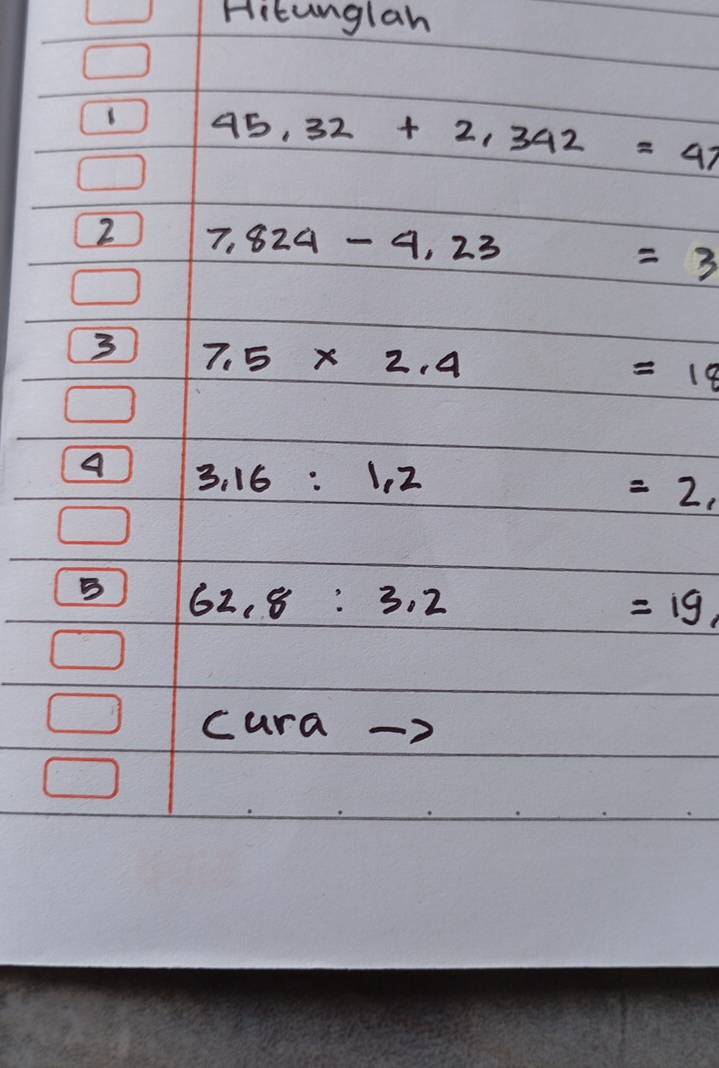 Hitunglah
1 45,32 + 2,342 = 47
2 7,824 - 4,23 = 3
3 7,5 x 2,4 = 18
4 3,16 : 1,2 = 2,
5 62,8 : 3,2 = 19,
Cara ->